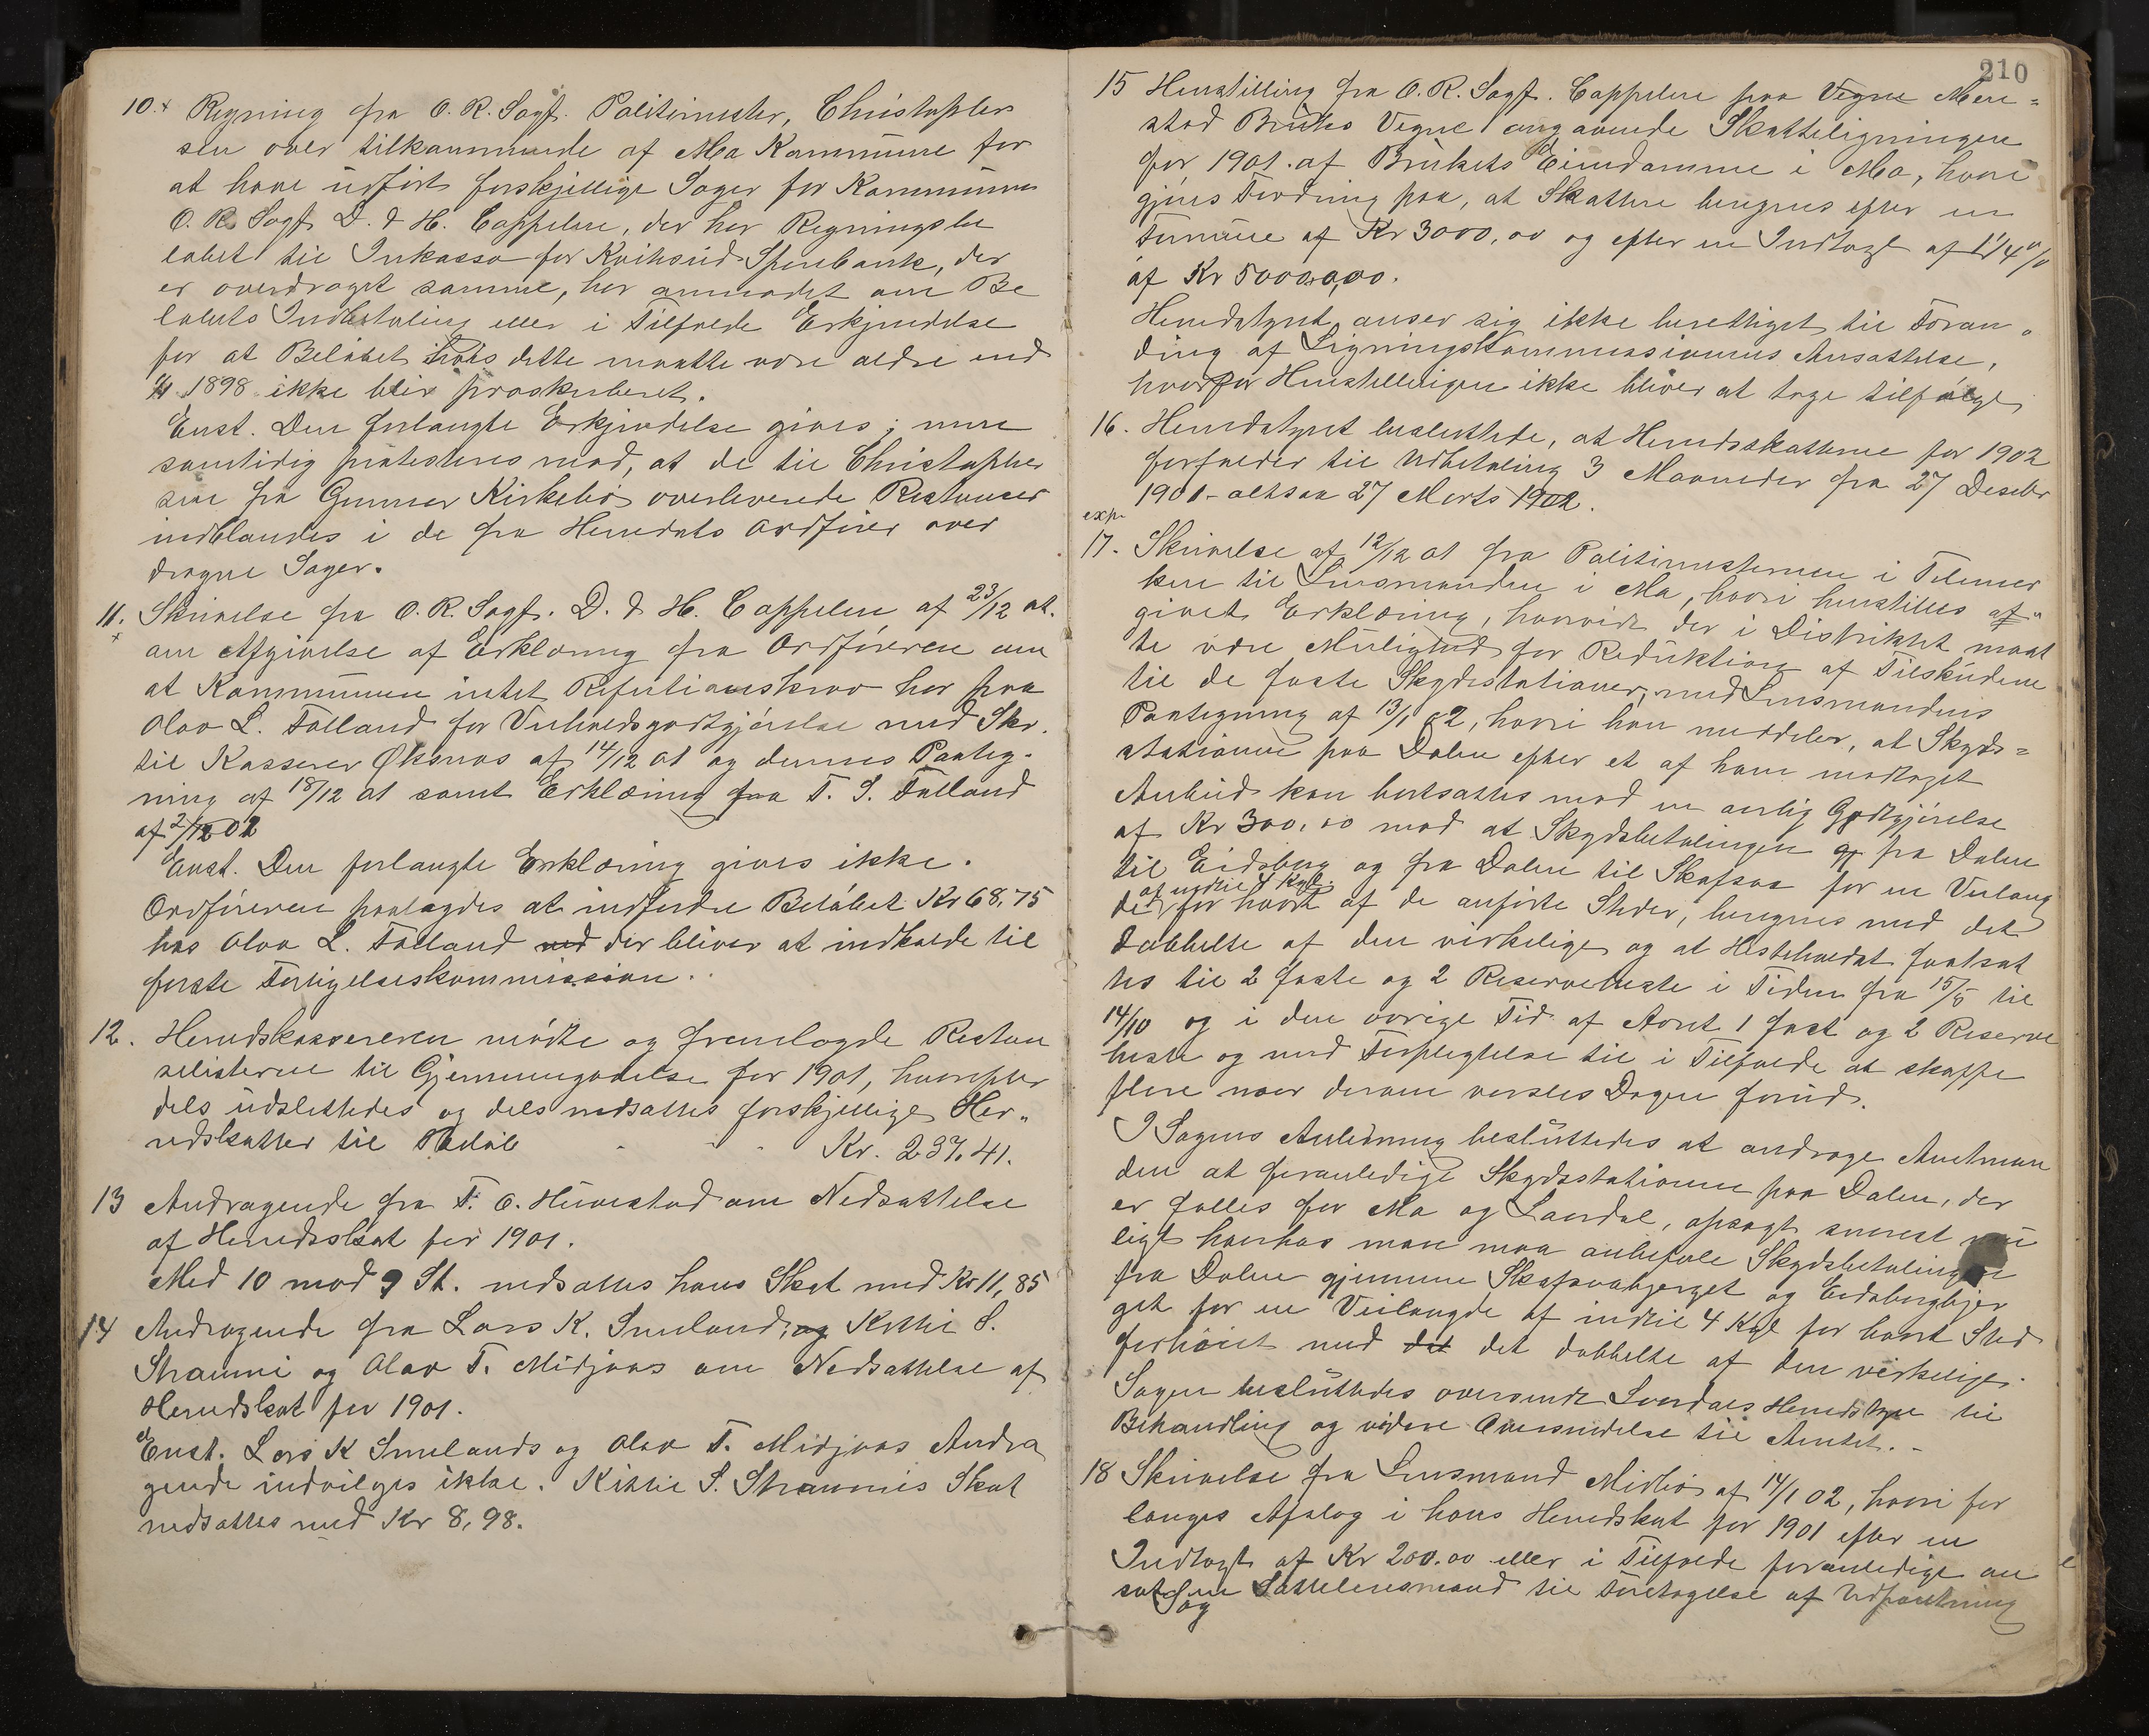 10.+ Regning fra O. R. Sagf. Politimester, Christopher
sen over tilkommende af Mo Kommune for
at have udført forskjellige Sager for Kommunen
O. R. Sagf. D. & H. Cappelen, der har Regningsbe
løbet til Inkasso for Kviteseid Sparebank, der
er overdraget samme, har anmodet om Be
løbets Indbetaling eller i Tilfælde Erkjendelse
for at Beløbet hvis dette maatte være ældre end
1898 ikke blir proskriberet.
Enst. Den forlangte Erkjendelse gives; men
samtidig protesteres mod, at de til Christopher
sen fra Gunnar Kirkebø overleverede Restanser
indblandes i de fra Heredets Ordfører over
dragne Sager.
11. Skrivelse fra O. R. Sagf. D. & H. Cappelen af 23/12 01.
+ om Afgivelse af Erklæring fra Ordføreren om
at Kommunen intet Refutionskrav har paa
Olav L. Folland for Verhedsgodtgjørelse med Skr.
til Kasserer Øksnæs af 14/12 01 og dennes Paateg-
ning af 18/12 01 samt Erklæring fra T. S. Folland
af 2/1 02
Enst. Den forlangte Erklæring gives ikke.
Ordføreren paalagdes at indfordre Beløbet Kr 68,75
hos Olav L. Folland ved der bliver at indkalde til
første Forligelseskommission.
12. Heredskassereren mødte og fremlagde Restan
selisterne til Gjennemgaaelse for 1901, hvorefter
dels udslettedes og dels nedsattes forskjellige Her„
redskatter til Beløb - - - Kr. 237,41.
13 Andragende fra T. O. Huvestad om Nedsættelse
af Heredsskat for 1901.
Med 10 mod 9 St. nedsattes hans Skat med Kr 11,85
14 Andragende fra Lars K. Smeland, og Kittil S.
Straume og Olav T. Midjaas om Nedsættelse af
Heredskat for 1901.
Enst. Lars K Smelands og Olav T. Midjaas Andra
gende indvilges ikke. Kittil S. Straumes Skat
nedsattes med Kr 8,98.
210
15 Henstilling fra O. R. Sagf. Cappelen paa Vegne Mere=
stad Bruks Vegne angaaende Skatteligningen
for 1901 af Brukets Eiendomme i Mo, hvori
gjøres Fordring paa, at Skatten beregnes efter en
Formue af Kr 3000,00 og efter en Indtægt af 1¼ %
af Kr 50000,00.
Heredstyret anser sig ikke berettiget til Foran„
dring af Ligningskommissionens Ansættelse,
hvorfor Henstillingen ikke bliver at tage tilfølge.
16. Heredstyret besluttede, at Heredsskatterne for 1902
forfalder til Udbetaling 3 Maaneder fra 27 Decebr
1901 - altsaa 27 Marts 1902.
exp.
17. Skrivelse af 12/12 01 fra Politimesteren i Telemar
ken til Lensmanden i Mo, hvori henstilles af„
givet Erklæring, hvorvidt der i Distriktet maat
te være Mulighed for Reduktion af Tilskudene
til de faste Skydsstationer, med Lensmandens
Paategning af 13/1 02, hvori han meddeler, at Skyds=
stationen paa Dalen efter et af ham modtaget
Anbud kan bortsættes mod en aarlig Godtgjørelse
af Kr 300,00 mod at Skydsbetalingen fra Dalen
til Eidsborg og fra Dalen til Skafsaa for en Veilæng
af indtil 4 Kgl.
de for hvert af de anførte Steder, beregnes med det
dobbelte af den virkelige og at Hesteholdet fortsæt
tes til 2 faste og 2 Reserveheste i Tiden fra 15/5 til
14/10 og i den øvrige Tid af Aaret 1 fast og 2 Reserve
heste og med Forpligtelse til i Tilfælde at skaffe
flere naar derom varsles Dagen forud.
I Sagens Anledning besluttedes at andrage Amtman
den at foranledige Skydsstationen paa Dalen, der
er fælles for Mo og Laardal, opsagt snarest mu
ligt hvorhos man maa anbefale Skydsbetalingen
fra Dalen gjennem Skafsaabjerget og Eidsborgbjer
get for en Veilængde af indtil 4 Kgl for hvert Sted
forhøiet med det det dobbelte af den virkelige.
Sagen besluttedes oversendt Laardals Heredstyre til
Behandling og videre Oversendelse til Amtet. -
18 Skrivelse fra Lensmand Midbø af 14/1 02, hvori for
langes Afslag i hans Heredskat for 1901 efter en
Indtægt af Kr 200.00 eller i Tilfælde foranledige an
sat en Sættelensmand til Foretagelse af Udpantning
Sag